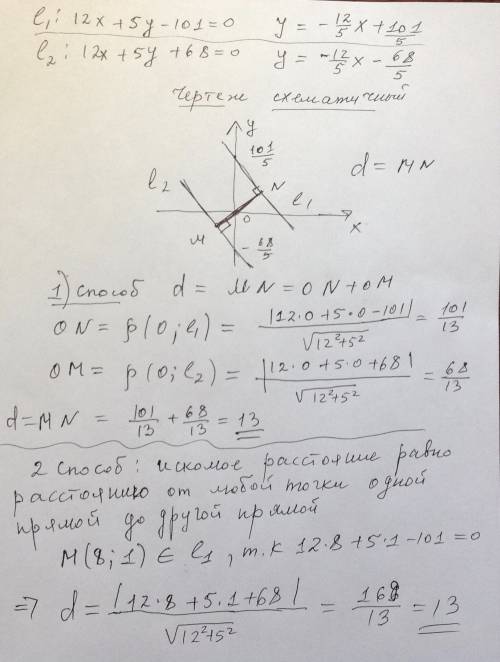 l₁: 12x + 5y - 101 = 0    y = -12/5 x + 101/5
l₂: 12x + 5y + 68 = 0    y = -12/5 x - 68/5
Чертеж схематичный
y
101/5
d = MN
l₂
N
l₁
O
x
M
-68/5
1) способ  d = MN = ON + OM
ON = ρ(0; l₁) = |12·0 + 5·0 - 101| / √(12²+5²) = 101/13
OM = ρ(0; l₂) = |12·0 + 5·0 + 68| / √(12²+5²) = 68/13
d = MN = 101/13 + 68/13 = 13
2 способ: искомое расстояние равно
расстоянию от любой точки одной
прямой до другой прямой
M(8; 1) ∈ l₁, т.к 12·8 + 5·1 - 101 = 0
⇒ d = |12·8 + 5·1 + 68| / √(12²+5²) = 169/13 = 13